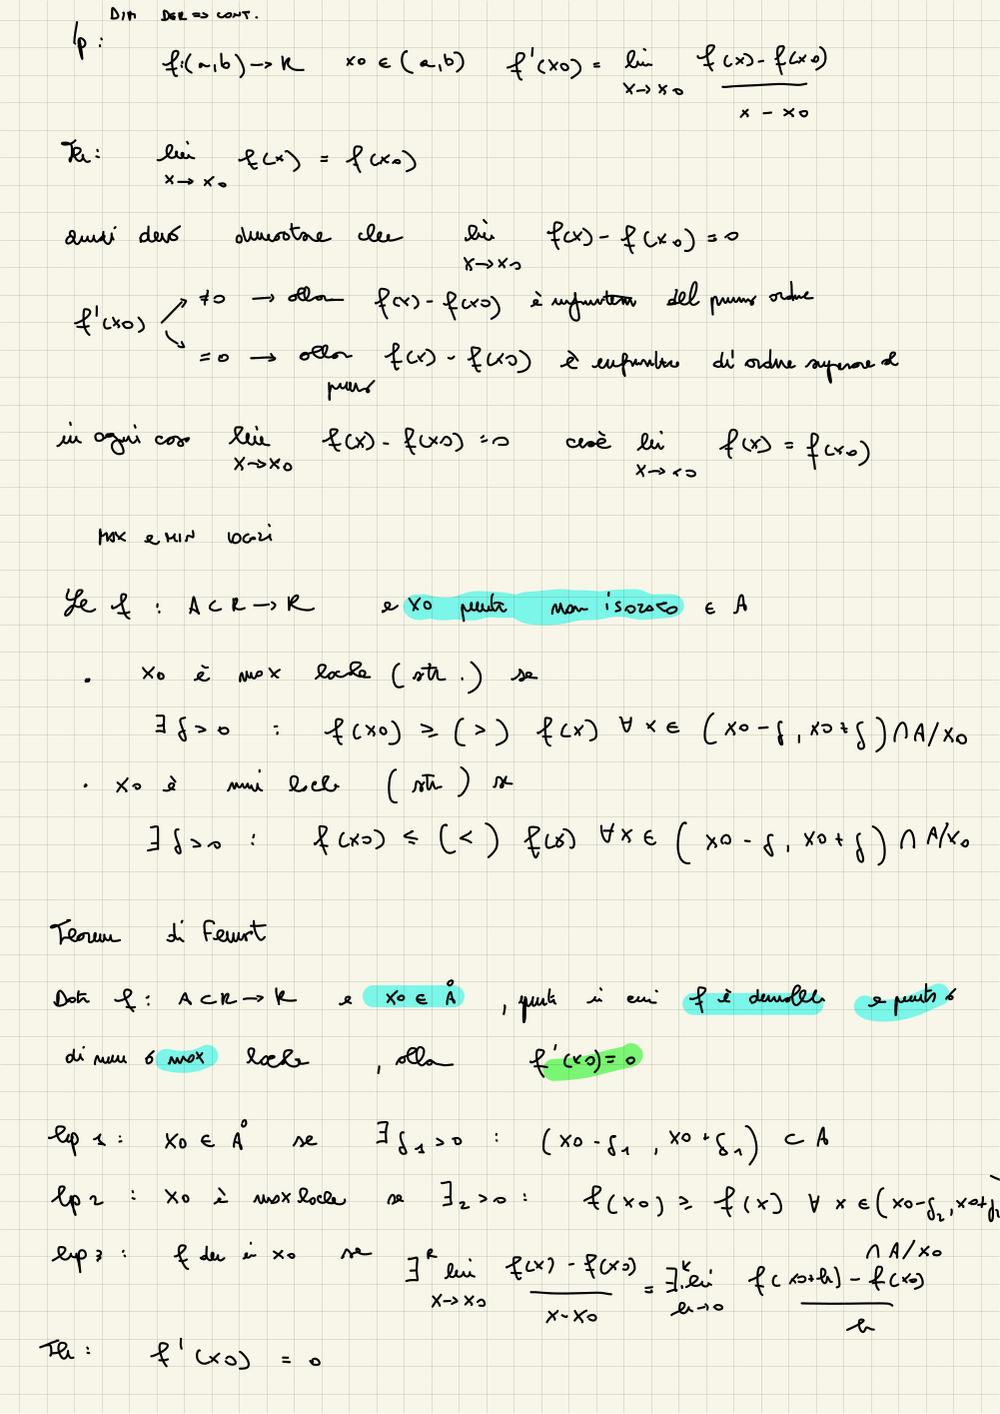 DIM DER => CONT.
Ip:
f:(a,b) → R x0 ∈ (a,b) f'(x0) = lim x→x0 f(x) - f(x0) / x - x0
Th: lim x→x0 f(x) = f(x0)
quindi devo dimostrare che lim x→x0 f(x) - f(x0) = 0
f'(x0) ≠0 → allora f(x) - f(x0) è infinitesimo del primo ordine
=0 → allora f(x) - f(x0) è di ordine superiore al
primo
in ogni caso lim x→x0 f(x) - f(x0) = 0 cioè lim x→x0 f(x) = f(x0)
MAX e MIN LOCALI
Se f : A ⊂ R → R e x0 punto non isolato ∈ A
• x0 è max locale (str.) se
∃ δ > 0 : f(x0) ≥ (>) f(x) ∀ x ∈ (x0 - δ, x0 + δ) ∩ A/x0
• x0 è min locale (str) se
∃ δ > 0 : f(x0) ≤ (<) f(x) ∀ x ∈ (x0 - δ, x0 + δ) ∩ A/x0
Teorema di Fermat
Data f : A ⊂ R → R e x0 ∈ Å, punto in cui f è derivabile e punto
di min o max locale, allora f'(x0) = 0
Ip 1 : x0 ∈ Å se ∃ δ1 > 0 : (x0 - δ1, x0 + δ1) ⊂ A
Ip 2 : x0 è max locale se ∃ 2 > 0 : f(x0) ≥ f(x) ∀ x ∈ (x0 - δ2, x0 + δ2)
∩ A/x0
Ip 3 : f der in x0 se ∃ lim x→x0 f(x) - f(x0) / x - x0 = ∃ lim h→0 f(x0+h) - f(x0) / h
Th : f'(x0) = 0